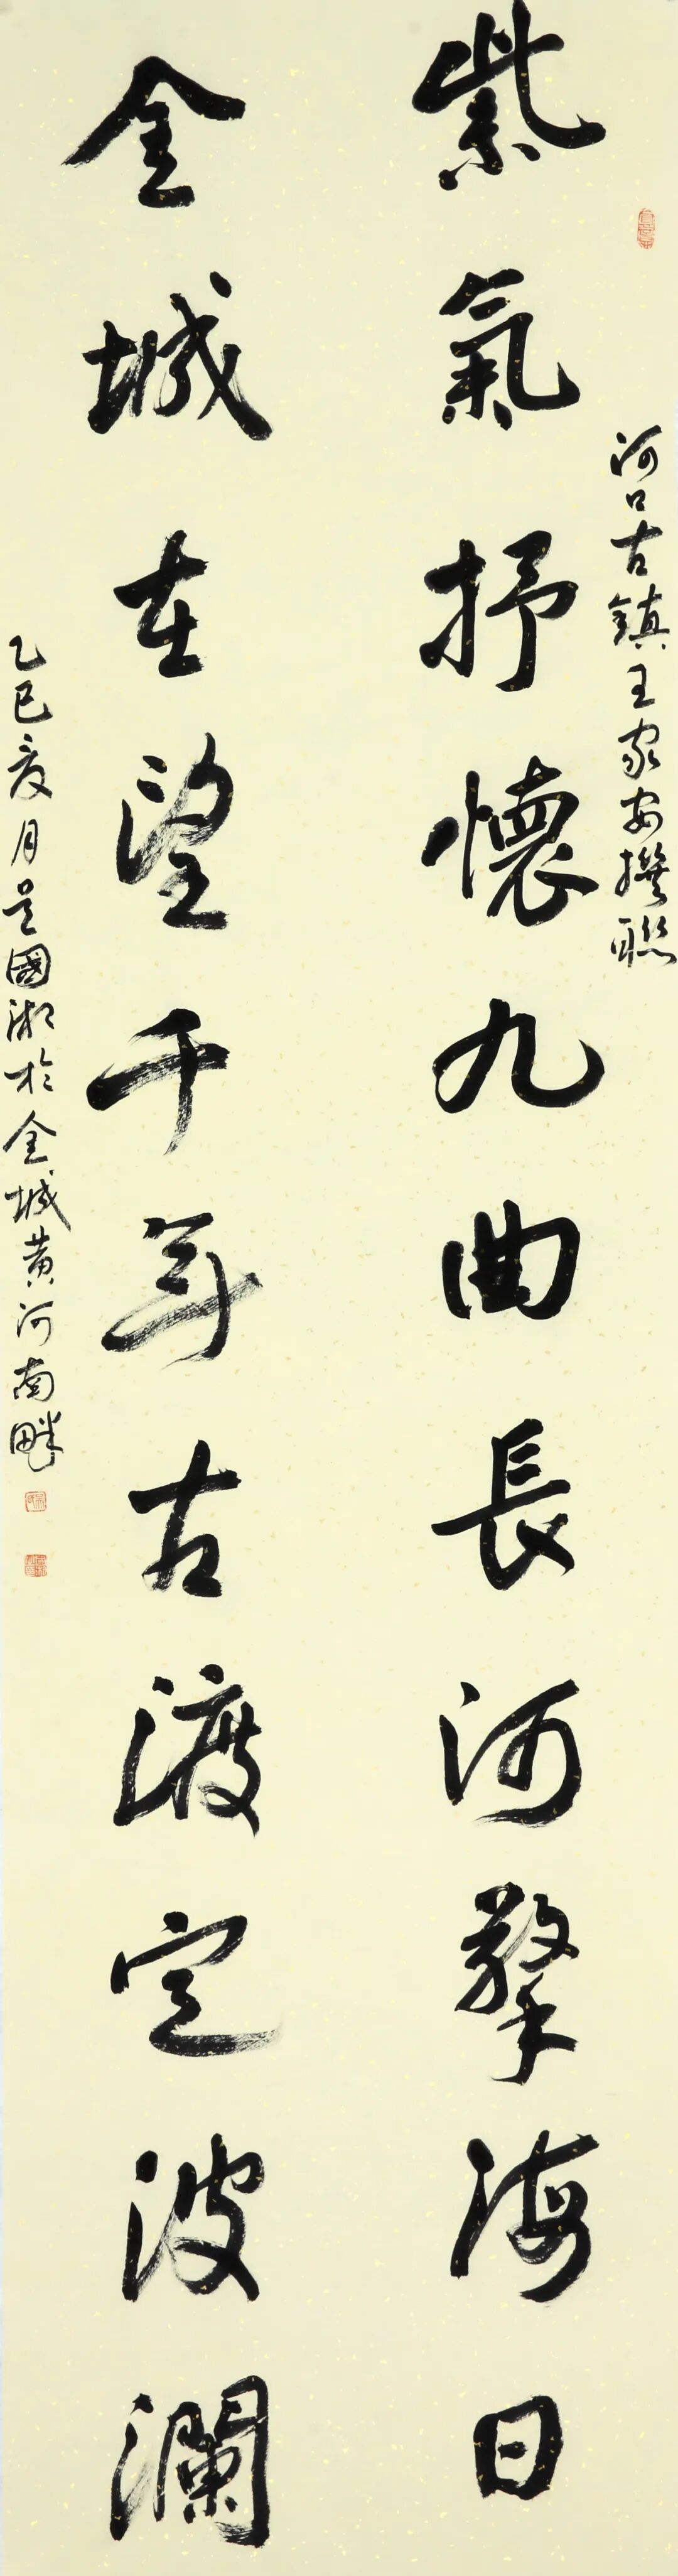 河口古鎮王家安撰聯
紫氣抒懷九曲長河擎海日
金城在望千年古渡定波瀾
乙巳夏月吳國湘於金城黃河南畔